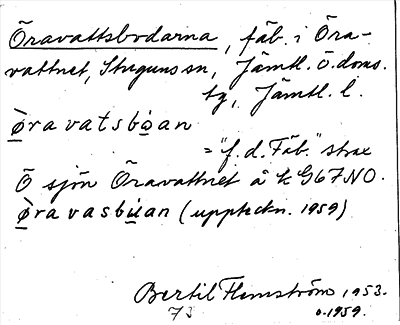 Öravattsbodarna, fäb. i Öra-
vattnet, Stuguns sn, Jämtl. ö. doms.
tg, Jämtl. l.
øravatsbo̲an
= "f. d. Fäb." strax
Ö sjön Öravattnet å k G67NO.
øravasbu̲an (uppteckn. 1959)
Bertil Flemström 1953.
73 o. 1959.